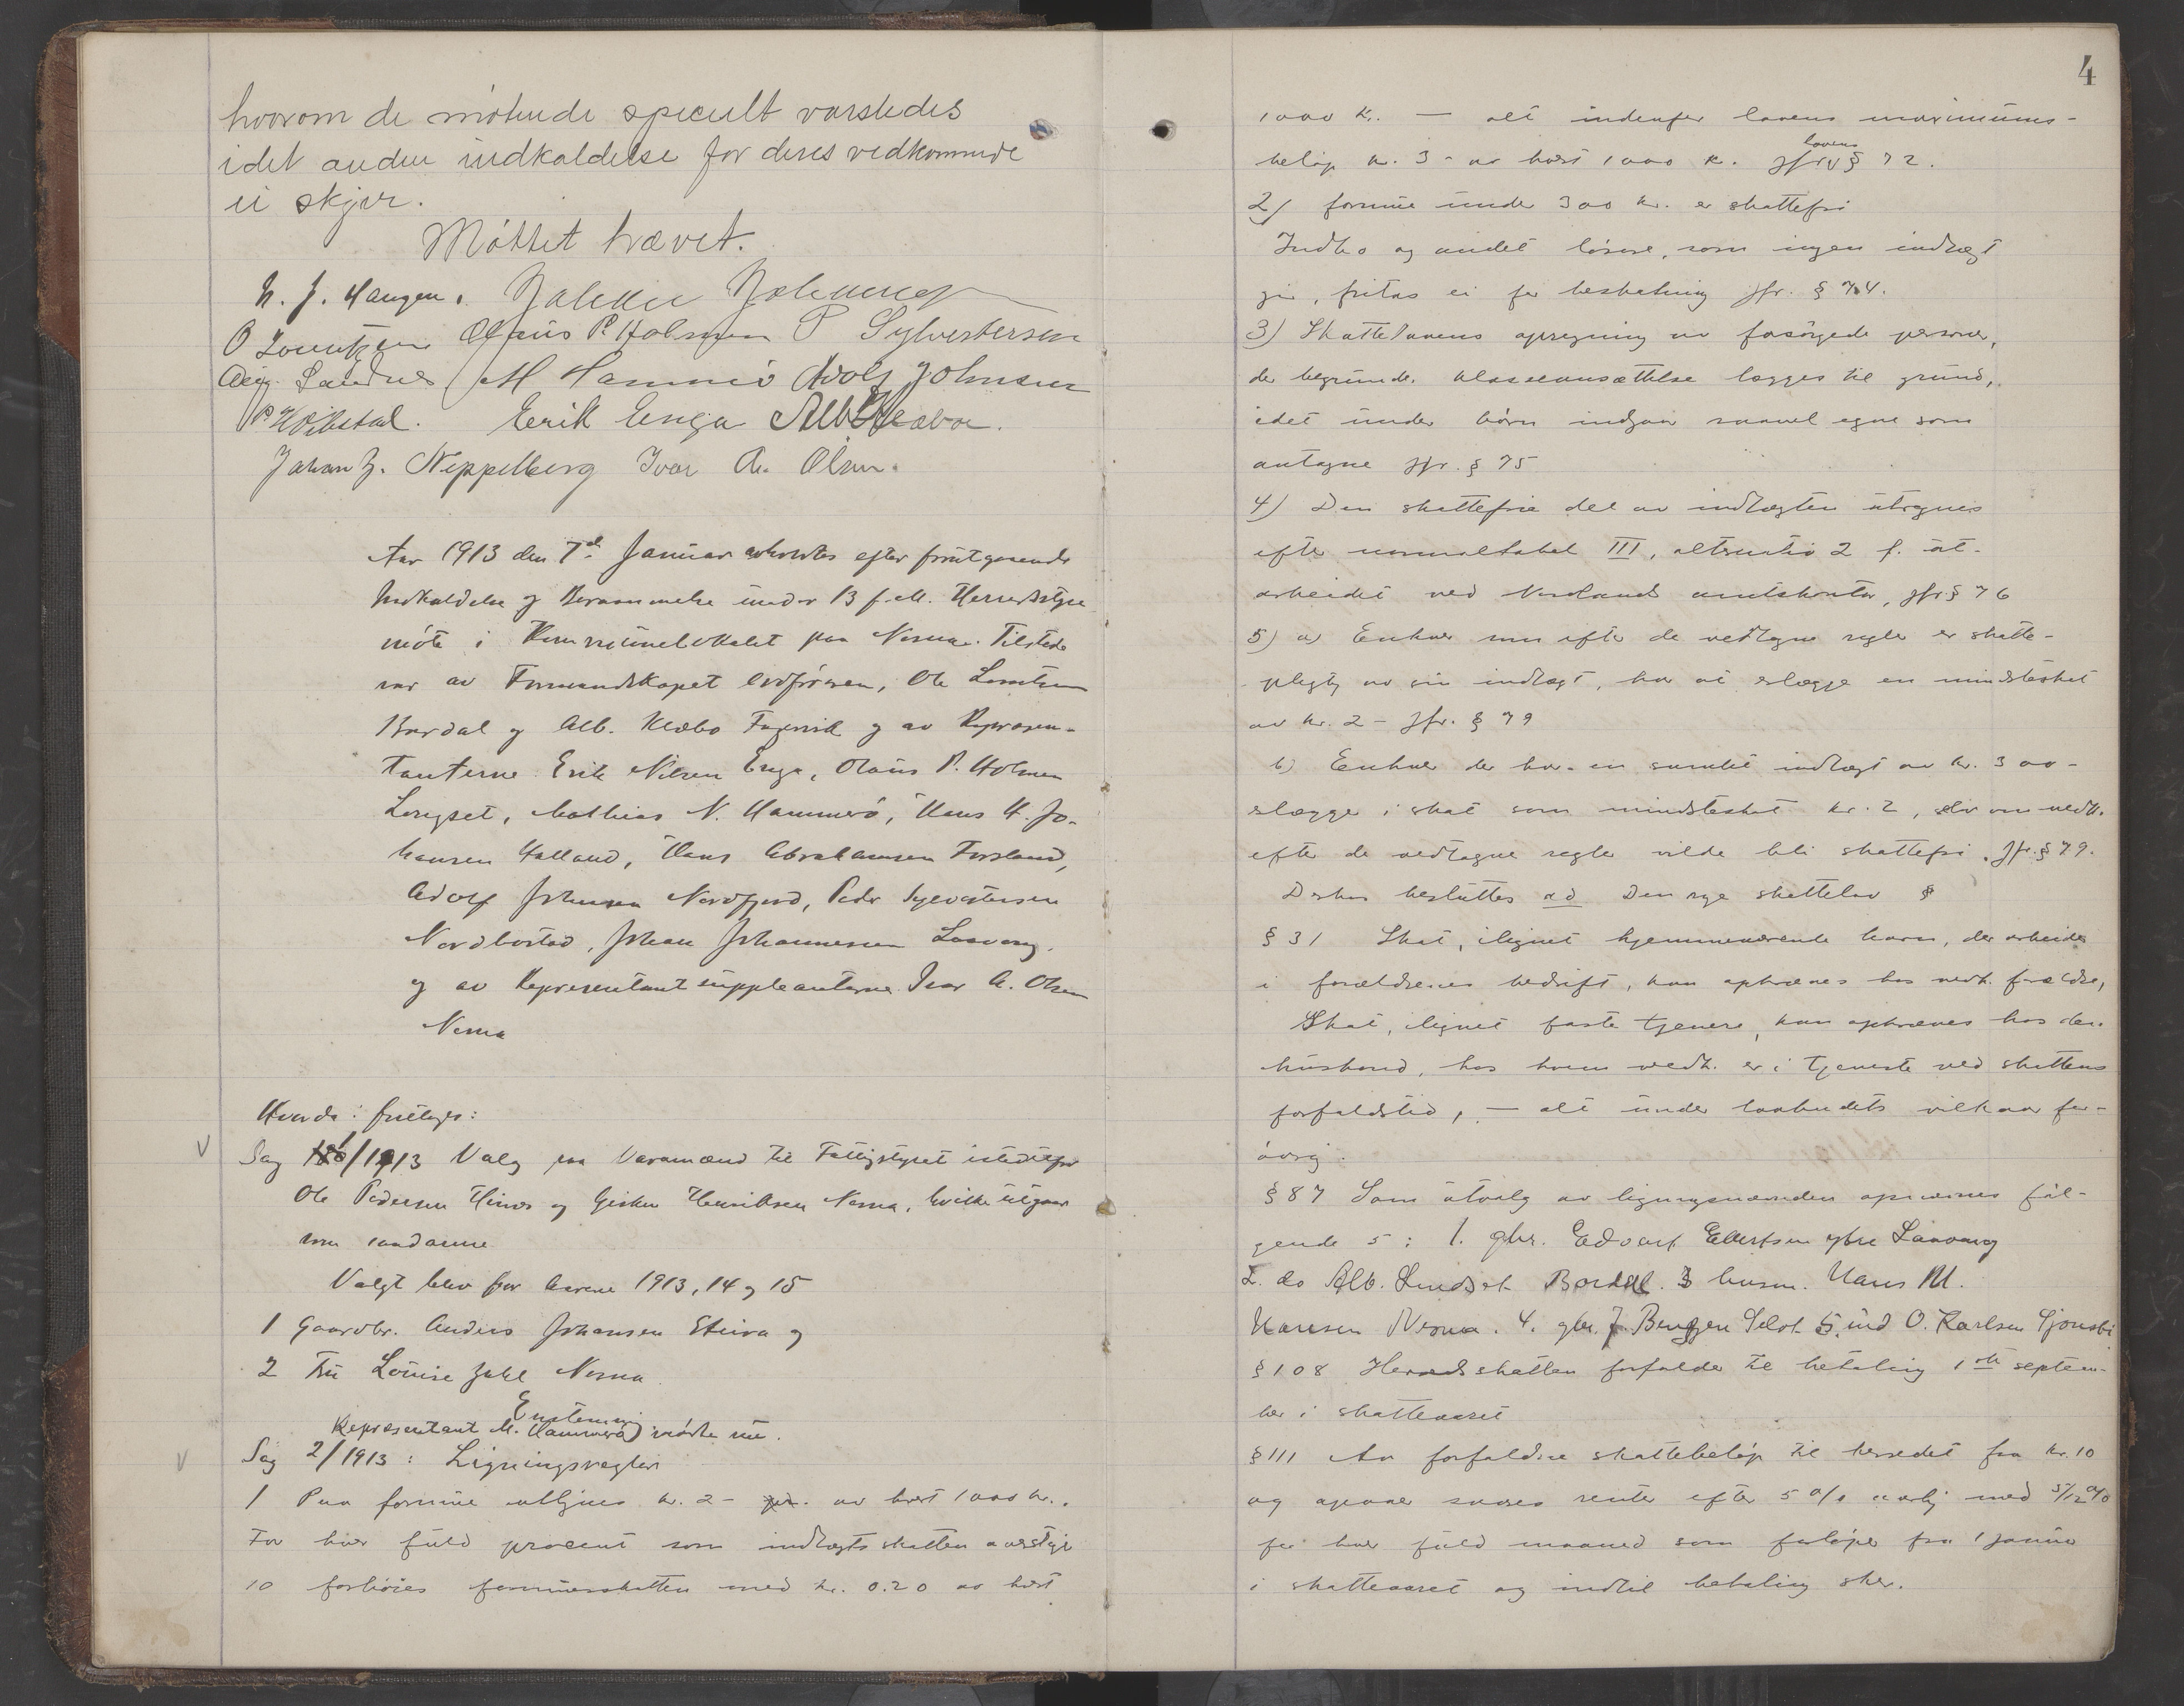 hvorom de møtende specielt varsledes
idet anden indkaldelse for deres vedkommende
ei skjer.
Møttet hævet.
N. J. Haugen. Johan Johannesen
O Lorntzen Olaus P. Holmen P Sylvestersen
Sandnes M Hammerö Adolf Johnsen
Erik Enga Alb Klæboe.
Johan Z. Neppelberg Ivar A. Olsen.
Aar 1913 den 7de Januar avholdtes efter forutgaaende
Indkaldelse og Berammelse under 13 f. M. Herredsstyre
møte i Kommunelokalet paa Nesna. Tilstede
var av Formandskapet Ordføreren, Ole Lorntzen
Bardal og Alb. Klæbo Fagervik og av Repræsen-
tanterne Erik Nilsen Enga, Olaus P. Holmen
Langset, Mathias N. Hammerö, Hans H. Jo-
hansen Halland, Hans Abrahamsen Forsland,
Adolf Johnsen Nordfjord, Peder Sylvestersen
Nordbostad, Johan Johannesen Laavong.
og av Representantsuppleanterne Ivar A. Olsen
Nesna
Hvorda: foretoges:
Sag 1/1913 Valg paa Varamænd til Fattigstyret istedetfor
Ole Pedersen Hinnes og Henriksen Nesna, hvilke utgaar
som saadanne
Valgt blev for Aarene 1913, 14 og 15
1 Gaardbr. Anders Johansen Steira og
2 Fru Louise Zahl Nesna
Enstemmig
Repræsentant M. Hammerö møtte nu.
Sag 2/1913: Ligningsregler
1 Paa formue utlignes kr. 2- av hvert 1000 kr..
For hver fuld procent som indtægtsskatten overstiger
10 forhöies formuesskatten med kr. 0.20 av hvert
4
1000 kr. — alt indenfor lovens maximums-
beløp kr. 3- av hvert 1000 kr. jfr lovens § 72.
2) formue under 300 kr. er skattefri
Indbo og andet løsøre, som ingen indtægt
gir, fritas ei for beskatning jfr. § 74.
3) Skattelovens opregning av forsørgede personer,
der begrunder klasseansættelse lægges til grund,
idet under børn indgaar saavel egne som
antagne jfr. § 75
4) Den skattefrie del av indtægten utregnes
efter normaltabel III, alternativ 2 f. ut-
arbeidet ved Nordlands amtskontor, jfr § 76
5) a) Enhver som efter de vedtagne regler er skatte-
pligtig av sin indtægt, har at erlægge en mindsteskat
av kr. 2- jfr. § 79
b) Enhver der har en samlet indtægt av kr. 300-
erlægger i skat som mindsteskat kr. 2, selv om vedk.
efter de vedtagne regler vilde bli skattefri. Jfr. § 79.
Derhos besluttes ad Den nye skattelov §
§ 31 Skat, ilignet hjemmeværende barn, der arbeider
i forældrenes bedrift, kan opkræves hos vedk. forældre,
Skat, ilignet faste tjenere, kan opkræves hos den
husbond, hos hvem vedk. er i tjeneste ved skattens
forfaldstid, — alt under lovbudets vilkaar for-
øvrig.
§ 87 Som utvalg av ligningsnævnden opnævnes føl-
gende 5: 1. gbr. Edvart Ellertsen ytre Laavong
2. do Alb. Lindset Bardal. 3 husm. Hans M.
Hansen Nesna. 4. gbr. J. Bengjen 5. ind O. Karlsen Sjonsbi
§ 108 Herredsskatten forfalder til betaling 1ste septem-
ber i skatteaaret
§ 111 Av forfaldne skattebeløp til herredet fra kr. 10
og opover svares renter efter 5 o/o aarlig med 5/12 o/o
for hver fuld maaned som forløper fra 1 januar
i skatteaaret og indtil betaling sker.